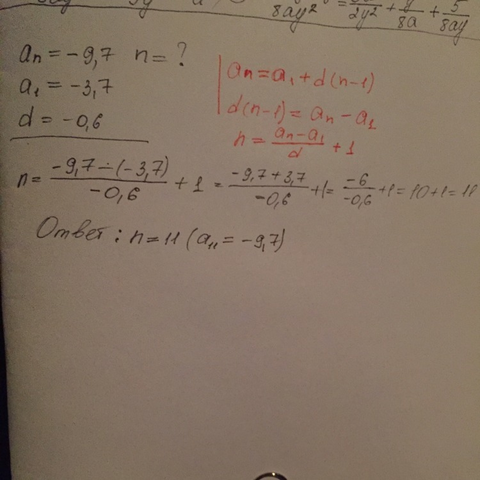 8ay² = 2y² + y/8a + 5/8ay
aₙ = -9,7 n = ?
a₁ = -3,7
d = -0,6
aₙ = a₁ + d(n-1)
d(n-1) = aₙ - a₁
n = (aₙ - a₁)/d + 1
n = (-9,7 - (-3,7))/(-0,6) + 1 = (-9,7 + 3,7)/(-0,6) + 1 = (-6)/(-0,6) + 1 = 10 + 1 = 11
Ответ: n = 11 (a₁₁ = -9,7)